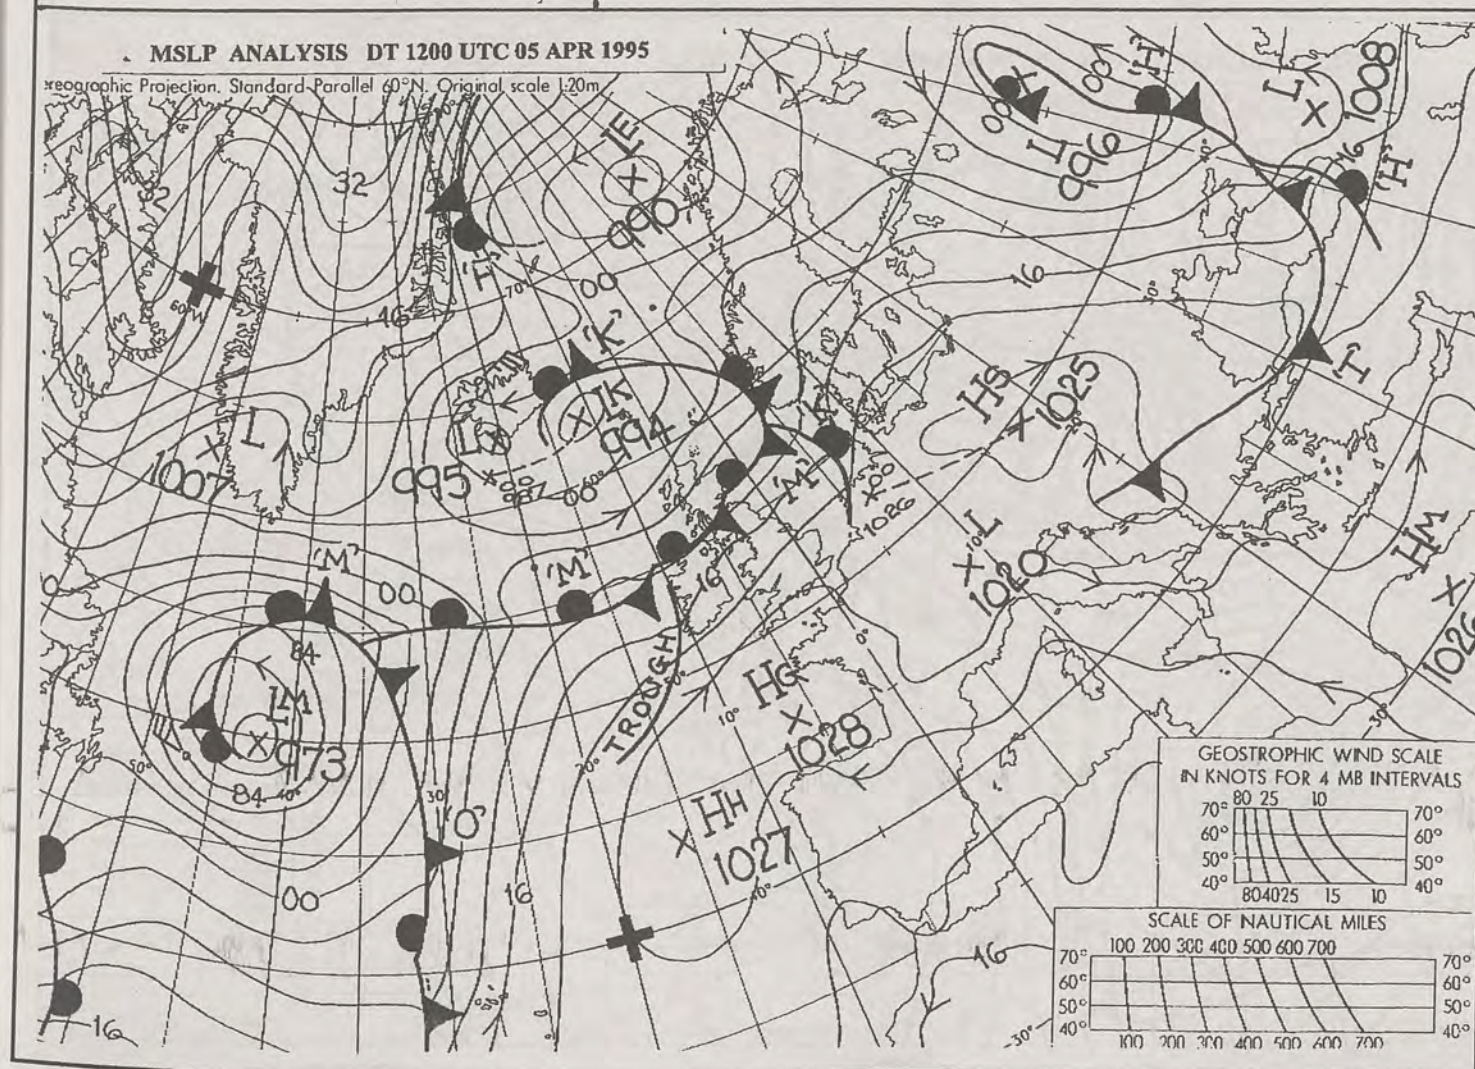 . MSLP ANALYSIS DT 1200 UTC 05 APR 1995
reographic Projection. Standard Parallel 60°N. Original scale 1:20m
32
60°W
16
LE
990
00
'H'
L
1008
00
LI
996
16
'H'
70°
00
16
'K'
LK
994
L
995
987
00
60°
L
1007
'K'
'M'
HS
1025
1026
'I'
L
1020
HM
1026
'M'
00
'M'
16
84
LM
973
84
40°
50°
30°
'O'
00
16
16
TROUGH
20°
10°
0°
HG
1028
HH
1027
40°
16
30°
30°
GEOSTROPHIC WIND SCALE
IN KNOTS FOR 4 MB INTERVALS
80 25 10
70° 70°
60° 60°
50° 50°
40° 40°
80 40 25 15 10
SCALE OF NAUTICAL MILES
100 200 300 400 500 600 700
70° 70°
60° 60°
50° 50°
40° 40°
100 200 300 400 500 600 700